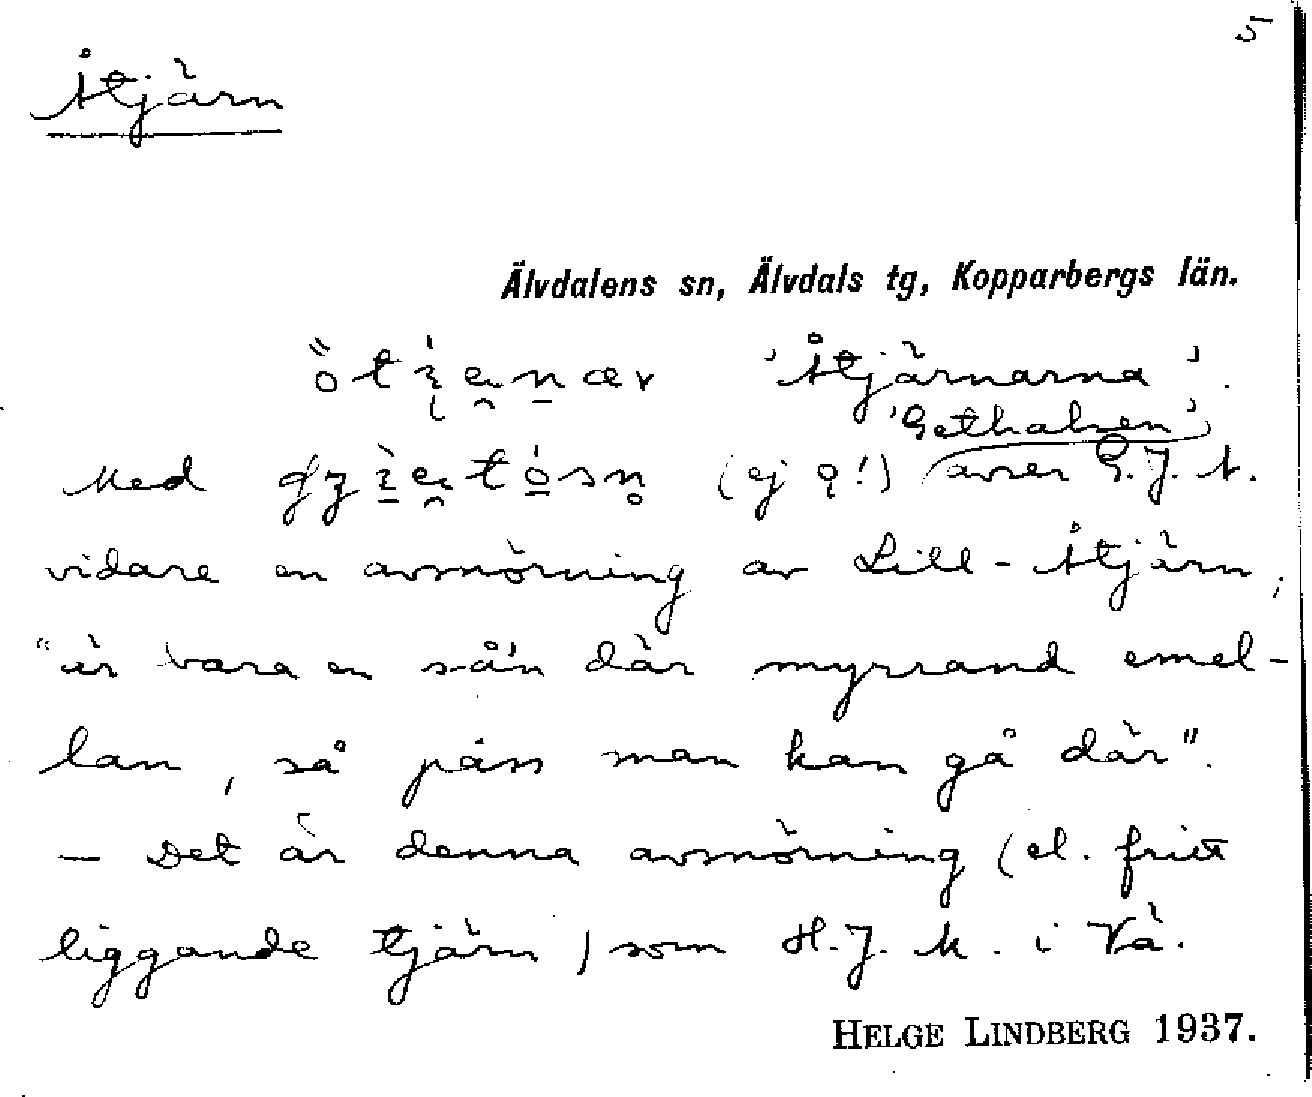 5
Åtjärn
Älvdalens sn, Älvdals tg, Kopparbergs län.
'Åtjärnarna'.
'Gethalsen'
Med (ej !) avser G.J.
vidare en avsnörning av Lill-Åtjärn,
"är bara en sån där myrrand emel-
lan, så pass man kan gå där".
— Det är denna avsnörning (el. fritt
liggande tjärn) som H.J. i Vå.
HELGE LINDBERG 1937.